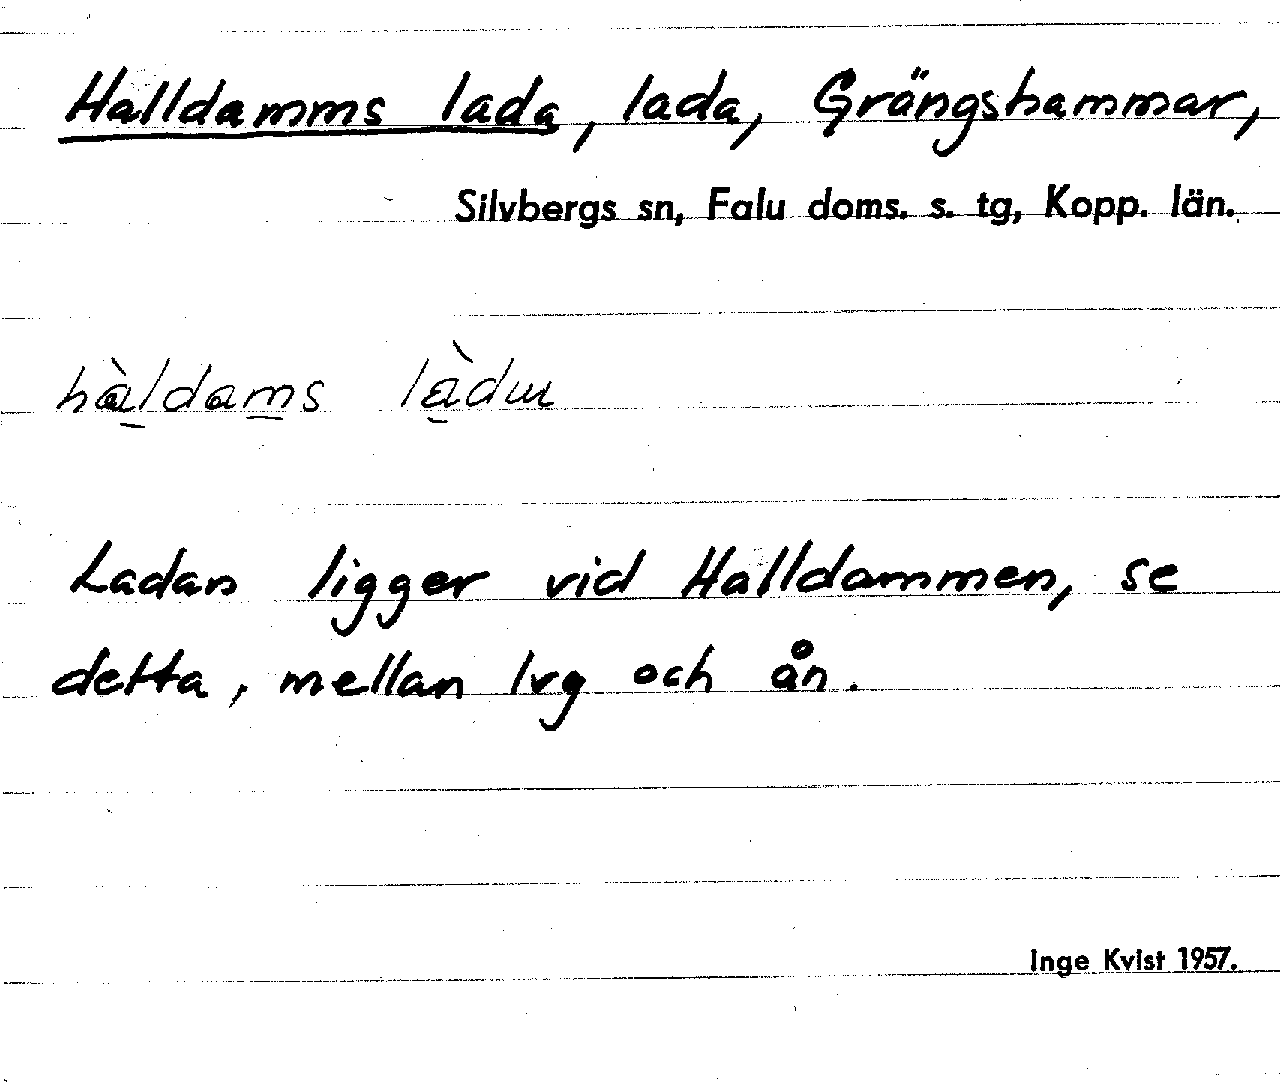 Halldamms lada, lada, Grängshammar,
Silvbergs sn, Falu doms. s. tg, Kopp. län.
hàldams làdɯ
Ladan ligger vid Halldammen, se
detta, mellan lvg och ån.
Inge Kvist 1957.